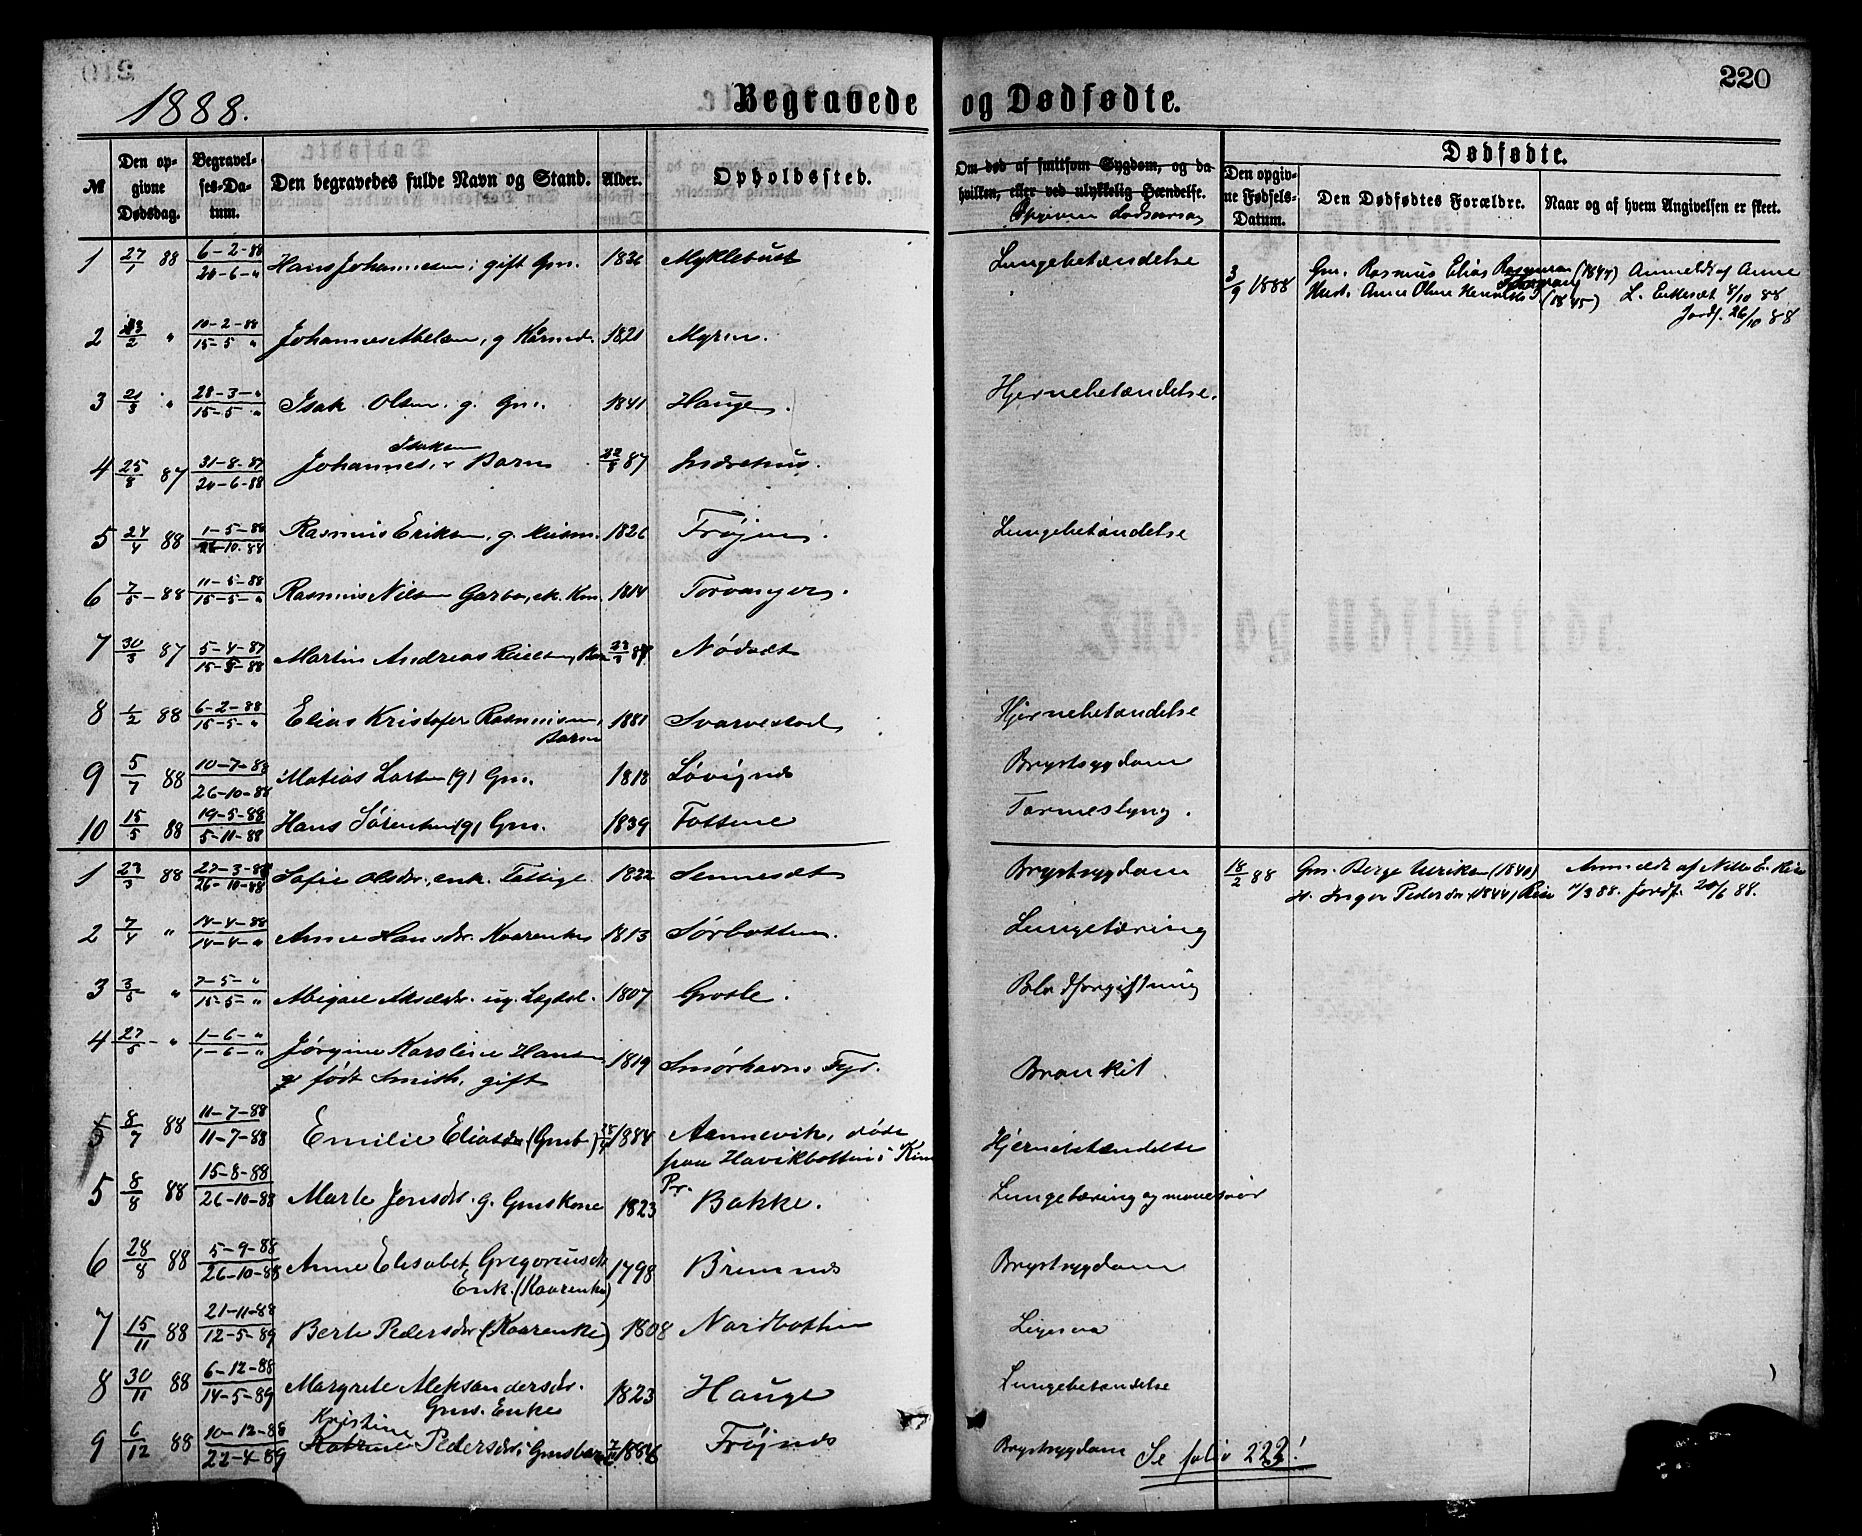 1888.
Begravede og Dødfødte.
220
№
Den opgivne Dødsdag.
Begravelses-Datum.
Den begravedes fulde Navn og Stand.
Alder.
Opholdssted.
Om død af smitsom Sygdom, og da hvilken, eller ved ulykkelig Hændelse.
Opgiven Dødsaarsag
Dødfødte.
Den opgivne Fødsels-Datum.
Den Dødfødtes Forældre.
Naar og af hvem Angivelsen er skeet.
1 27/1 88 6-2-88 20-6-" Hans Johannesen, gift Gm. 1826 Myklebust Lungebetændelse
3/9 1888 Gm. Rasmus Elias Rasmussen (1844) Anmeldt af Anne
Hust. Anne Oline (1845) L. Endesæt 8/10 88
Jordf. 26/10 88
2 /2 " 10-2-88 15-5 " Johannes Abelsen, g. 1821 Myren.
3 21/3 " 28-3-" 15-5 " Isak Olsen, g. Gm. 1841 Hauge. Hjernebetændelse.
4 25/8 87 31-8-87 20-6-88 Johannes Isaksen, Barn 22/8 87 Indrehus.
5 24/4 88 1-5-88 26-10-88 Rasmus Eriksen, g. Husm. 1826 Frøjen. Lungebetændelse
6 7/5 - 88 11-5-88 15-5-" Rasmus Nilsen Garbo, ek. 1814 Torvanger.
7 30/3 87 5-4-87 15-5-88 Martin Andreas 23/3 87 Nødset
8 1/2 88 6-2-88 15-5-" Elias Kristofer Rasmussen, Barn 1881 Svarvestad Hjernebetændelse
9 5/7 88 10-7-88 26-10-88 Matias Larsen (g) Gm. 1818 Løvignes Brystsygdom
10 15/5 88 19-5-88 5-11-88 Hans Sørensen (g) Gm. 1839 Tottene Tarmeslyng.
1 23/3 88 27-3-88 26-10-88 Sofie Olsdr., enk. Fattige. 1822 Sennesæt Brystsygdom
18/2 88 Gm. Berge Ulriksen (1840) Anmeldt af Nille E. Rise
H. Inger Pedersdr (1844) Rise 4/3 88. Jordf. 20/6 88.
2 7/4 " 14-4-88 14-4-" Anne Hansdr. Kaarenke 1813 Sørbotten. Lungetæring
3 3/5 " 7-5-" 15-5-" Abigael Akseldr. ug. Lægdsl. 1807 Grotle. Blodforgiftning
4 27/5 - " 1-6-" 1-6-" Jørgine Karoline Hansen
født Smith, gift 1819 Smørhavn Fyr. Bronkit.
5 8/7 88 11-7-88 11-7-88 Emilie Eliasdr (Gmb) 1884 Aannevik, døde Hjernebetændelse
paa Havikbotten i Kinn Pr.
5 8/8 88 15-8-88 26-10-88 Marte Jensdr. g. Gmskone 1823 Bakke. Lungetæring og
6 28/8 88 5-9-88 26-10-88 Anne Elisabet Gregoriusdr Enk. (Kaarenke) 1798 Bremnes Brystsygdom
7 15/11 88 21-11-88 12-5-89 Berte Pedersdr (Kaarenke) 1808 Nordbotten
8 30/11 88 6-12-88 14-5-89 Margrete Aleksandersdr. Gms. Enke 1823 Hauge Lungebetændelse
9 6/12 88 10-12-88 22-4-89 Kristine Pedersdr, Gmsbarn 1886 Frøjnes Brystsygdom
Se folio 222!